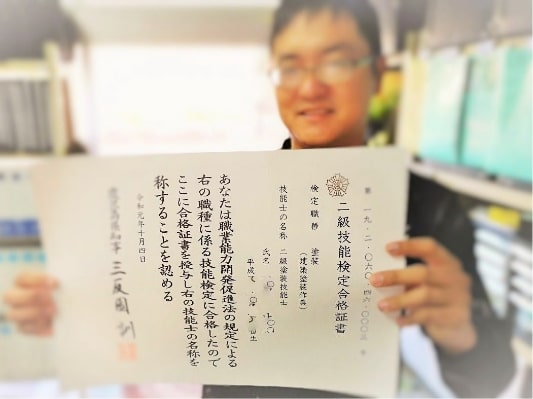 第一九-二-〇六〇-四六-〇〇〇三号
二級技能検定合格証書
検定職種 塗装
(建築塗装作業)
技能士の名称 二級塗装技能士
氏名
平成 生
あなたは職業能力開発促進法の規定による
右の職種に係る技能検定に合格したので
ここに合格証書を授与し右の技能士の名称を
称することを認める
令和元年十月四日
鹿児島県知事 三反園 訓